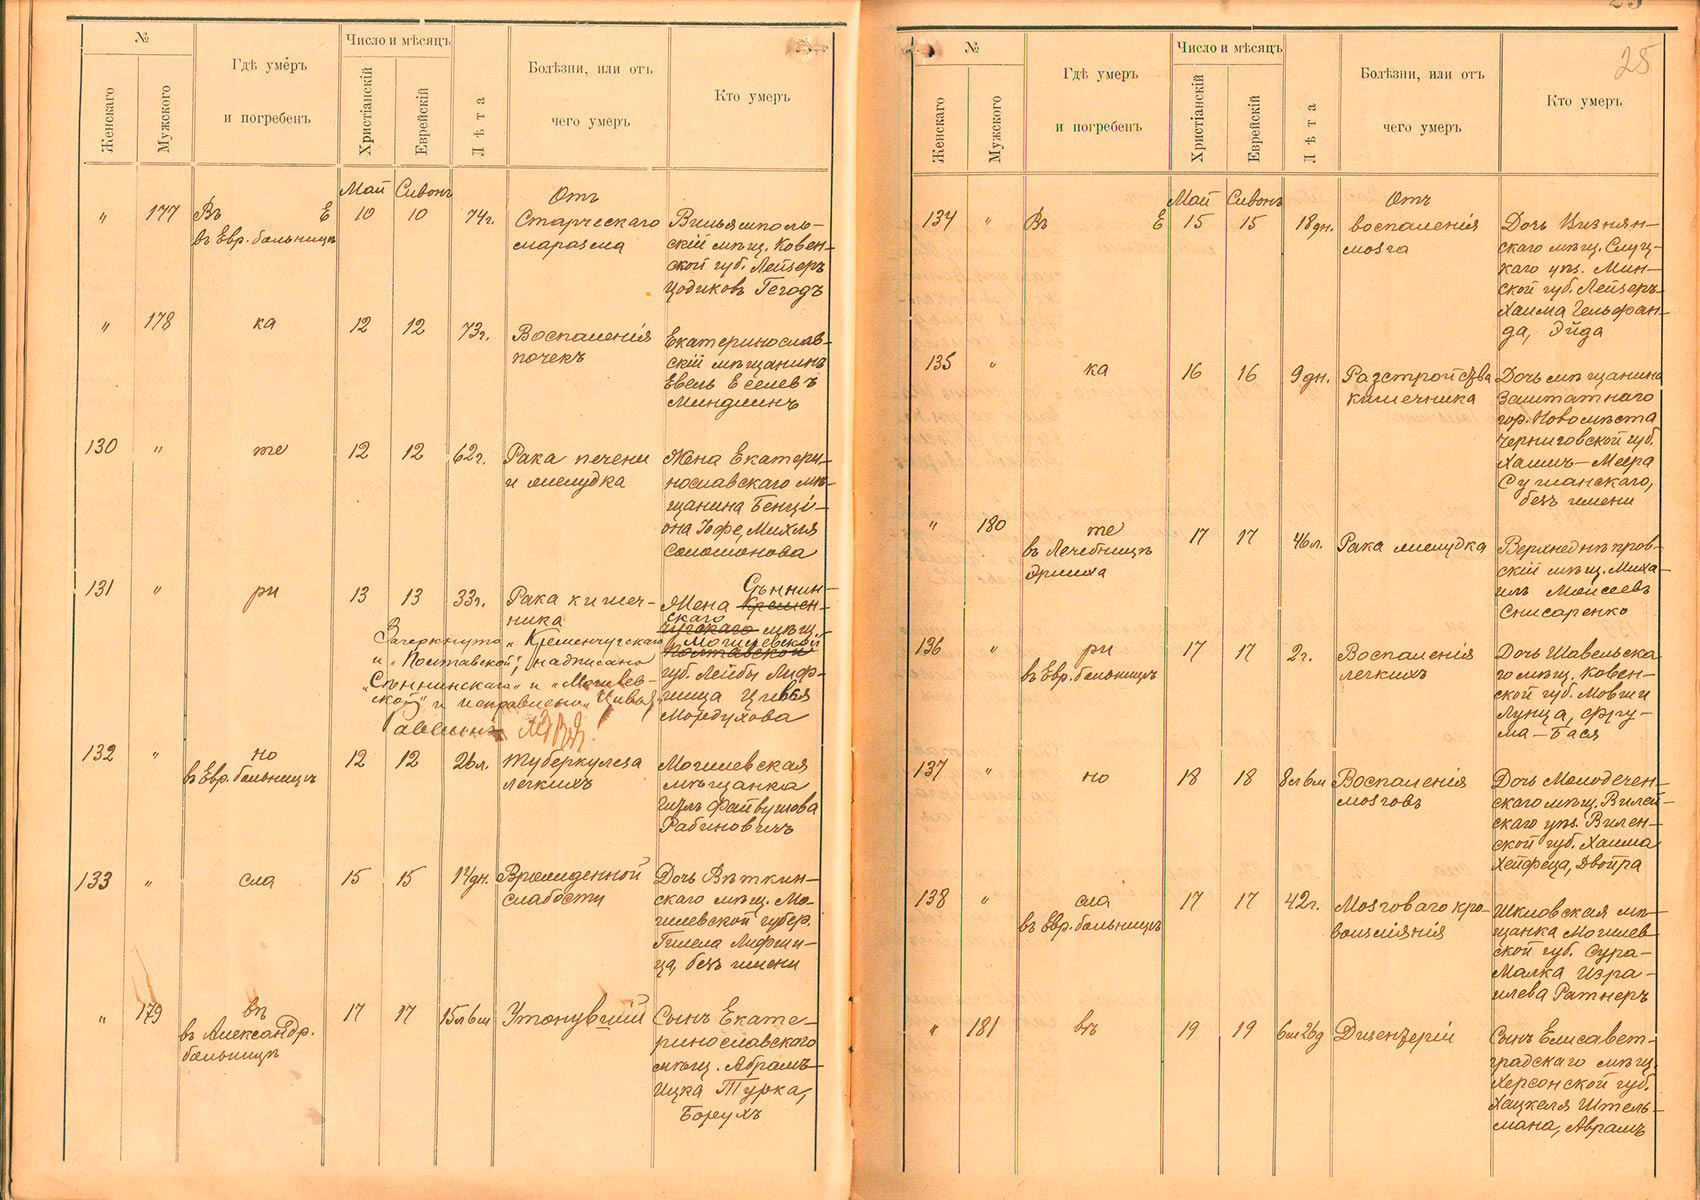 №
Женскаго
Мужского
Гдѣ умеръ
и погребенъ
Число и мѣсяцъ
Христіанскій
Еврейскій
Лѣта
Болѣзни, или отъ
чего умеръ
Кто умеръ
Май Сивонъ
Отъ
„ 177
Въ Е
въ Евр. больницѣ
10 10 74г.
Старческаго
маразма
Вильямполь-
скій мѣщ. Ковен-
ской губ. Лейзеръ
Цодиковъ Гегодъ
„ 178
ка
12 12 73г.
Воспаленія
почекъ
Екатеринослав-
скій мѣщанинъ
Евель Еселевъ
Миндлинъ
130 „
те
12 12 62г.
Рака печени
и желудка
Жена Екатери-
нославскаго мѣ-
щанина Бенці-
она Іофе, Михля
Соломонова
131 „
ри
13 13 33г.
Рака кишеч-
ника
Сѣннин-
Жена Кремен-
скаго
чугскаго мѣщ.
Могилевской
Полтавской
губ. Лейбы Лиф-
шица Цивья
Мордухова
Зачеркнуто „Кременчугскаго
и „Полтавской", надписано
„Сѣннинскаго" и „Могилев-
ской" и исправлено „Цивья"
Раввинъ
132 „
но
въ Евр. больницѣ
12 12 26л.
Туберкулеза
легкихъ
Могилевская
мѣщанка
Гишъ Файвушова
Рабиновичъ
133 „
сла
15 15 14дн.
Врожденной
слабости
Дочь Вѣткин-
скаго мѣщ. Мо-
гилевской губер.
Гилела Лифши-
ца, безъ имени
„ 179
въ
въ Александр.
больницѣ
17 17 15л 6м
Утонувшій
Сынъ Екате-
ринославскаго
мѣщ. Абрамъ
Ицка Турка,
Борухъ
25
№
Женскаго
Мужского
Гдѣ умеръ
и погребенъ
Число и мѣсяцъ
Христіанскій
Еврейскій
Лѣта
Болѣзни, или отъ
чего умеръ
Кто умеръ
Май Сивонъ
Отъ
134 „
Въ Е
15 15 18дн.
воспаленія
мозга
Дочь Визнян-
скаго мѣщ. Слуц-
каго уѣз. Мин-
ской губ. Лейзеръ
Хаима Гельфан-
да, Эйда
135 „
ка
16 16 9дн.
Разстройства
кишечника
Дочь мѣщанина
Заштатнаго
гор. Новомѣста
Черниговской губ.
Хаимъ-Меера
Сушанскаго,
безъ имени
„ 180
те
въ Лечебницѣ
17 17 46л.
Рака желудка
Верхнеднѣпров-
скій мѣщ. Миха-
илъ Моисеевъ
Снисаренко
136 „
ри
въ Евр. больницѣ
17 17 2г.
Воспаленія
легкихъ
Дочь Шавельска-
го мѣщ. Ковен-
ской губ. Мовши
Лунца, Фру-
ма-Бася
137 „
но
18 18 8л 6м
Воспаленія
мозговъ
Дочь Молодечен-
скаго мѣщ. Вилей-
скаго уѣз. Вилен-
ской губ. Хаима
Хейфеца, Двойра
138 „
сла
въ Евр. больницѣ
17 17 42г.
Мозговаго кро-
воизліянія
Шкловская мѣ-
щанка Могилев
ской губ. Сура-
Малка Изра-
илева Ратнеръ
„ 181
въ
19 19 6м 26д
Дизентеріи
Сынъ Елисавет-
градскаго мѣщ.
Херсонской губ.
Хацкеля Штель-
мана, Аврамъ